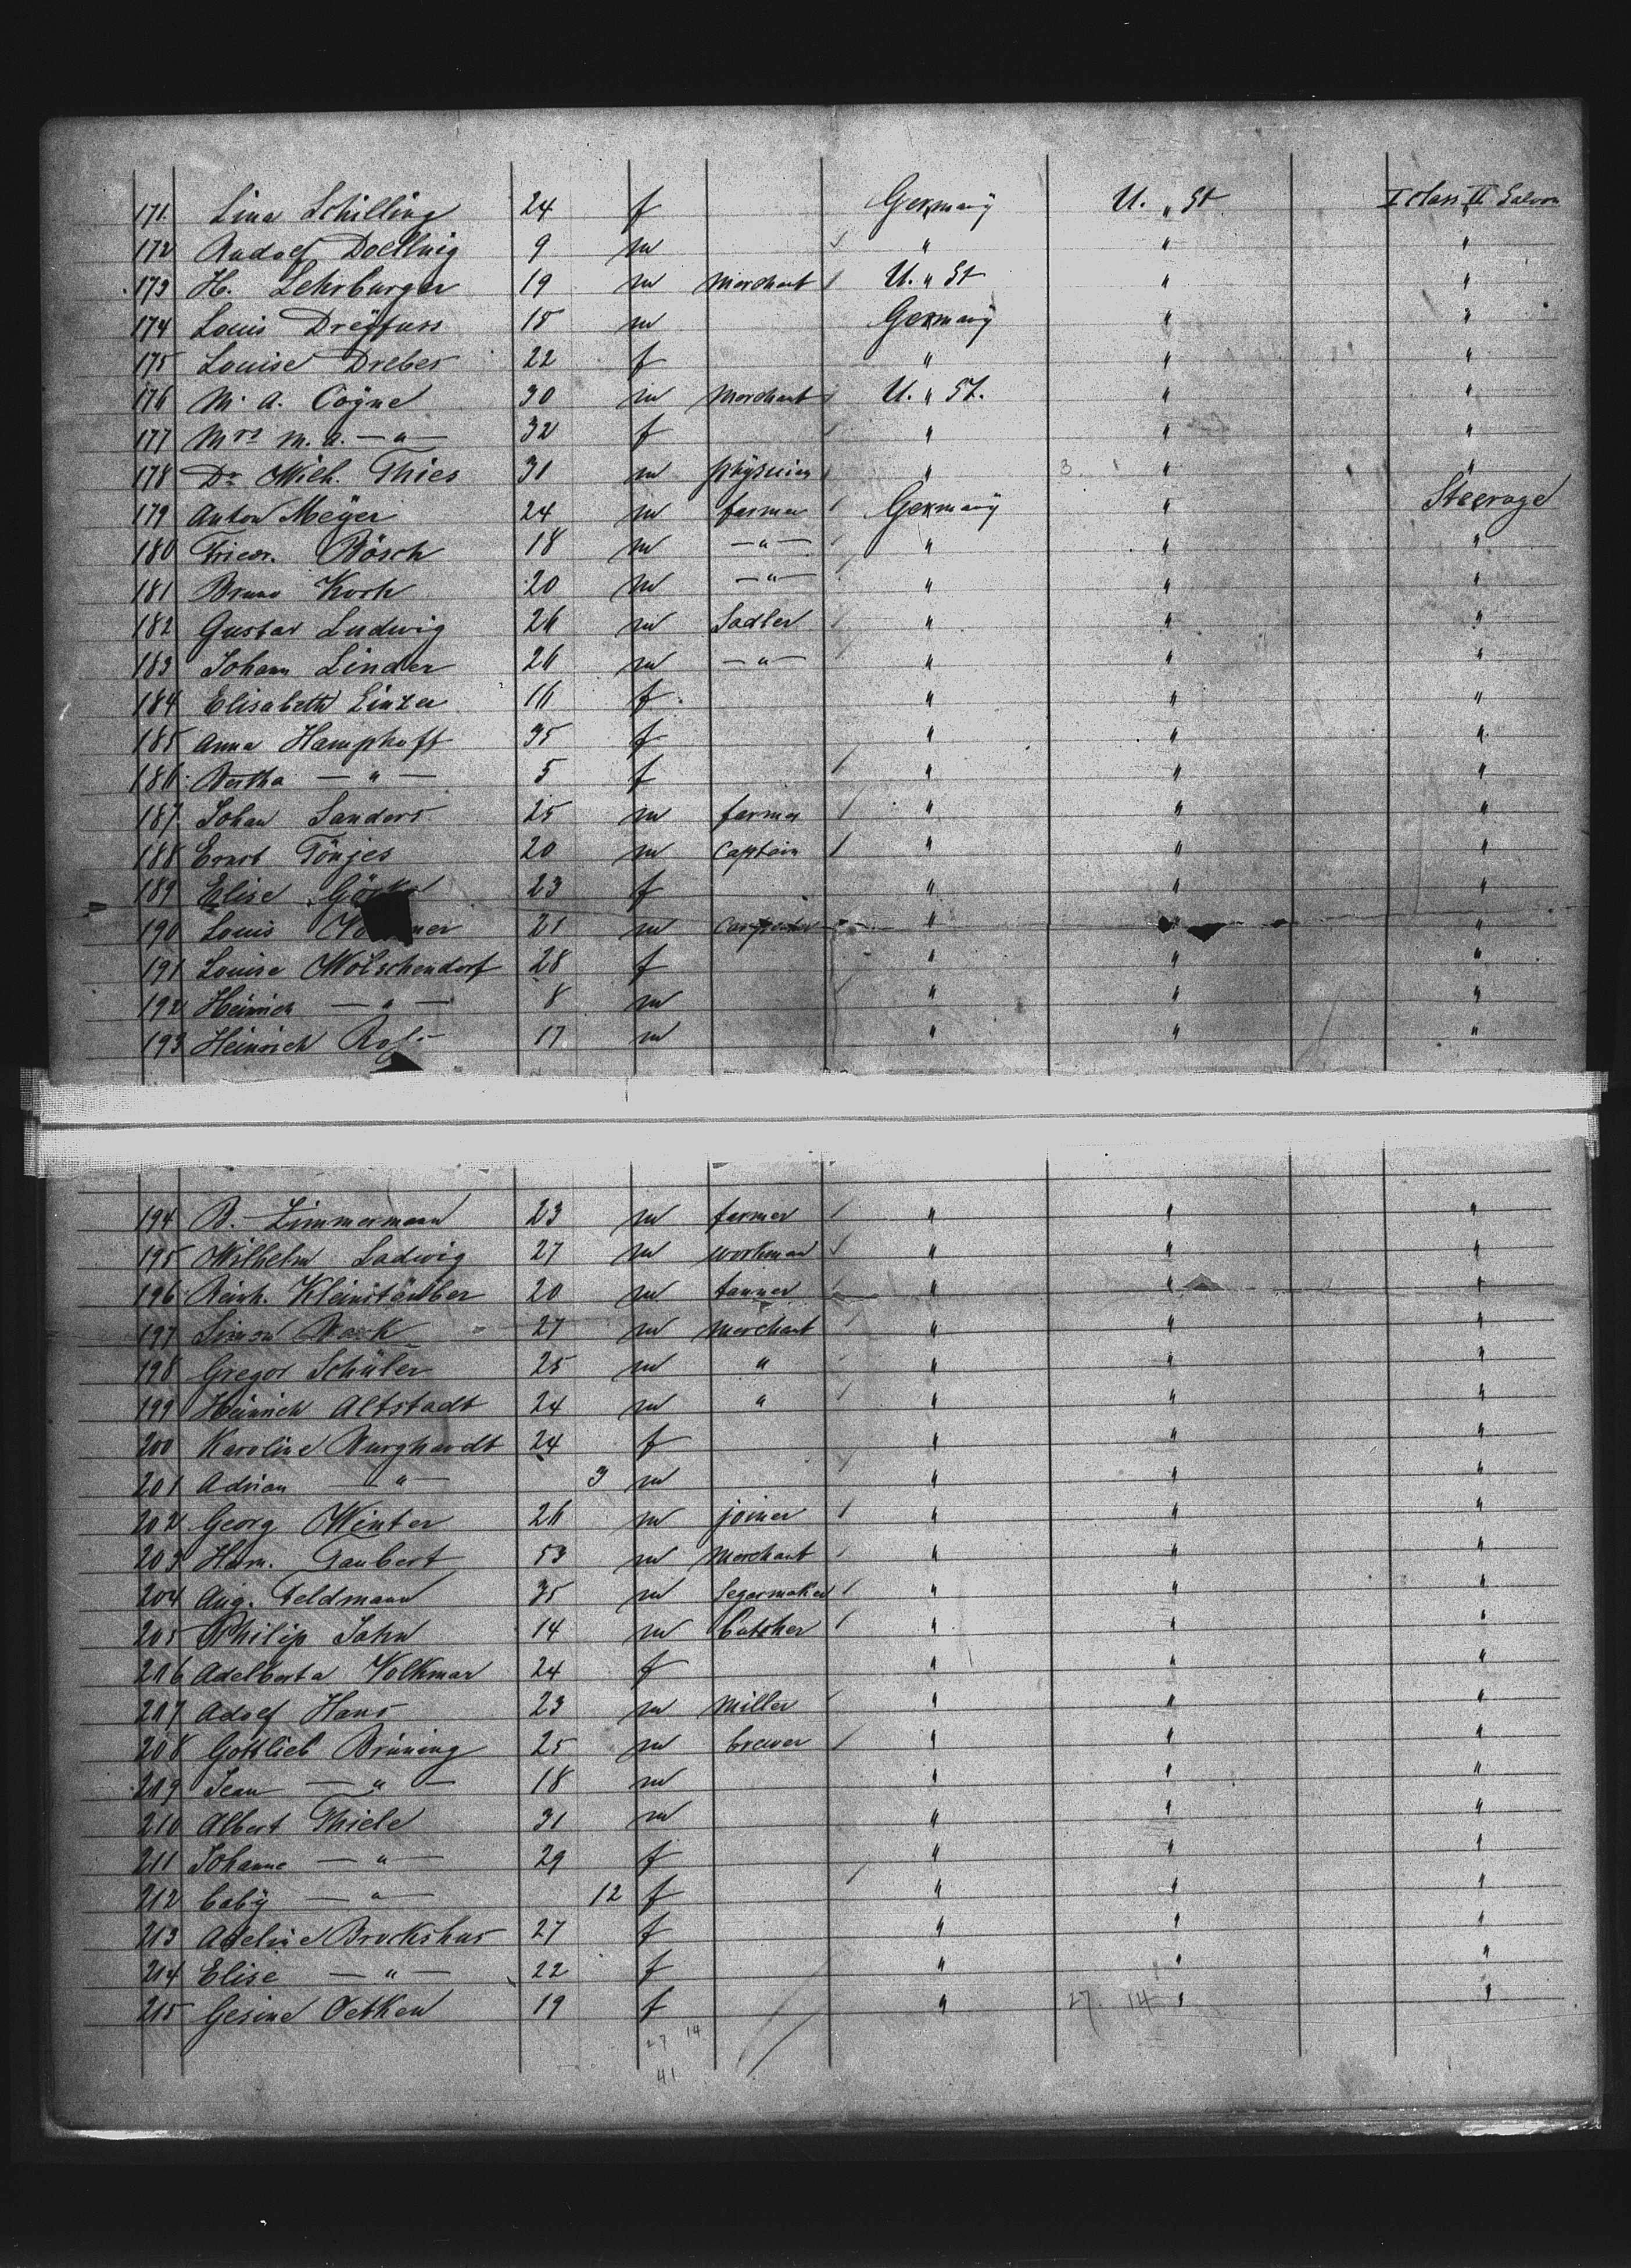 171 Lina Schilling 24 f Germany U. " St I Class II Saloon
172 Rudolf Doellnig 9 m " " "
173 H. Lehrburger 19 m merchant U. " St " "
174 Louis Dreyfuss 15 m Germany " "
175 Louise Dreber 22 f " " "
176 M. A. Cogne 30 m Merchant U. " St. " "
177 Mrs M. A. — " — 32 f " " "
178 Dr Wilh. Thies 31 m physician " 3. " "
179 Anton Meyer 24 m farmer Germany " Steerage
180 Friedr. Bösch 18 m — " — " " "
181 Bruno Koch 20 m — " — " " "
182 Gustav Ludwig 26 m Sadler " " "
183 Johann Linder 26 m — " — " " "
184 Elisabeth Linzer 16 f " " "
185 Anna Hamphoff 35 f " " "
186 Bertha — " — 5 f " " "
187 Johan Sanders 25 m farmer " " "
188 Ernst Tönjes 20 m Captain " " "
189 Elise 23 f " " "
190 Louis 21 m Carpenter " " "
191 Louise Wolschendorf 28 f " " "
192 Heinrich — " — 8 m " " "
193 Heinrich 17 m " " "
194 B. Zimmermann 23 m farmer " " "
195 Wilhelm Ladwig 27 m workman " " "
196 Reinh. Kleinstäuber 20 m tanner " " "
197 Simon Back 27 m merchant " " "
198 Gregor Schüler 25 m " " " "
199 Heinrich Altstadt 24 m " " " "
200 Karoline Burghardt 24 f " " "
201 Adrian — " — 3 m " " "
202 Georg Winter 26 m joiner " " "
203 Ham. Taubert 53 m Merchant " " "
204 Aug. Feldmann 35 m Segarmaker " " "
205 Philip Jahn 14 m butcher " " "
206 Adelberta Volkmar 24 f " " "
207 Adolf Hans 23 m Miller " " "
208 Gottlieb Brüning 25 m brewer " " "
209 Jean — " — 18 m " " "
210 Albert Thiele 31 m " " "
211 Johanne — " — 29 f " " "
212 baby — " — 12 f " " "
213 Adeline Brockshus 27 f " " "
214 Elise — " — 22 f " " "
215 Gesine Oetken 19 f " 27 14 " "
27 14
41